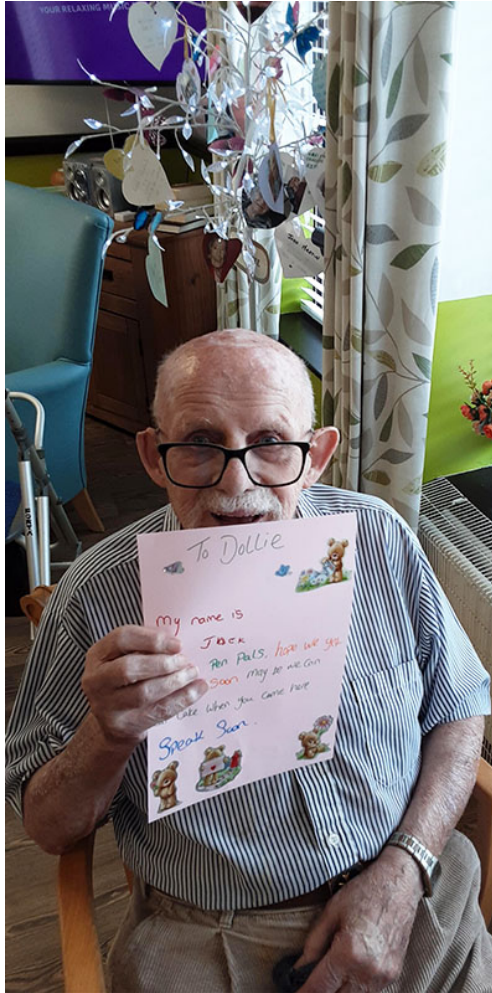 YOUR RELAXING MUSIC
To Dollie
My name is
Jack
Pen Pals, hope we
soon may be we can
Cake when you come here
Speak Soon.